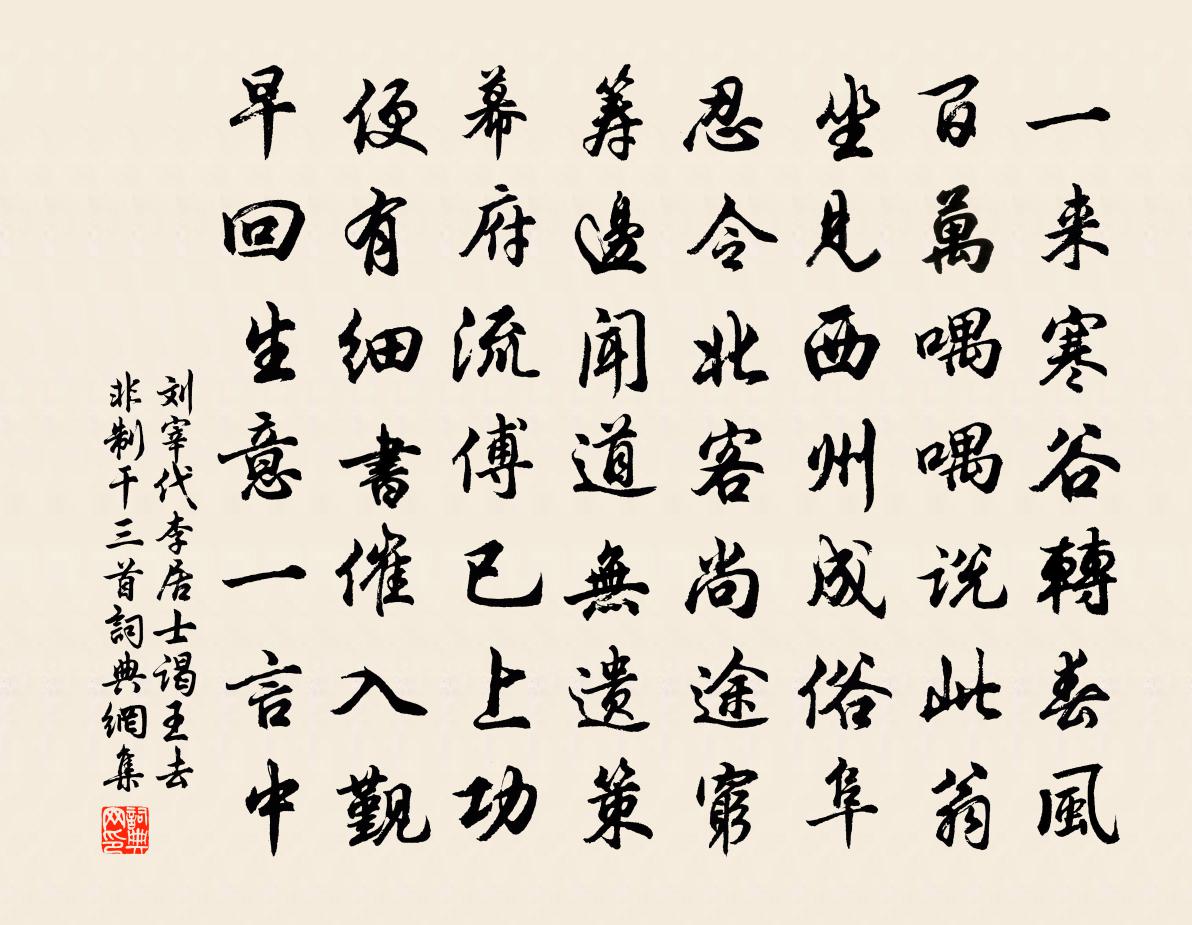 一来寒谷轉春風
百萬喁喁説此翁
坐見西州成俗阜
忍令北客尚途窮
筹邊聞道無遗策
幕府流傅已上功
便有细書催入觐
早回生意一言中
刘宰代李居士谒王去
非制干三首詞典網集
詞典
网印